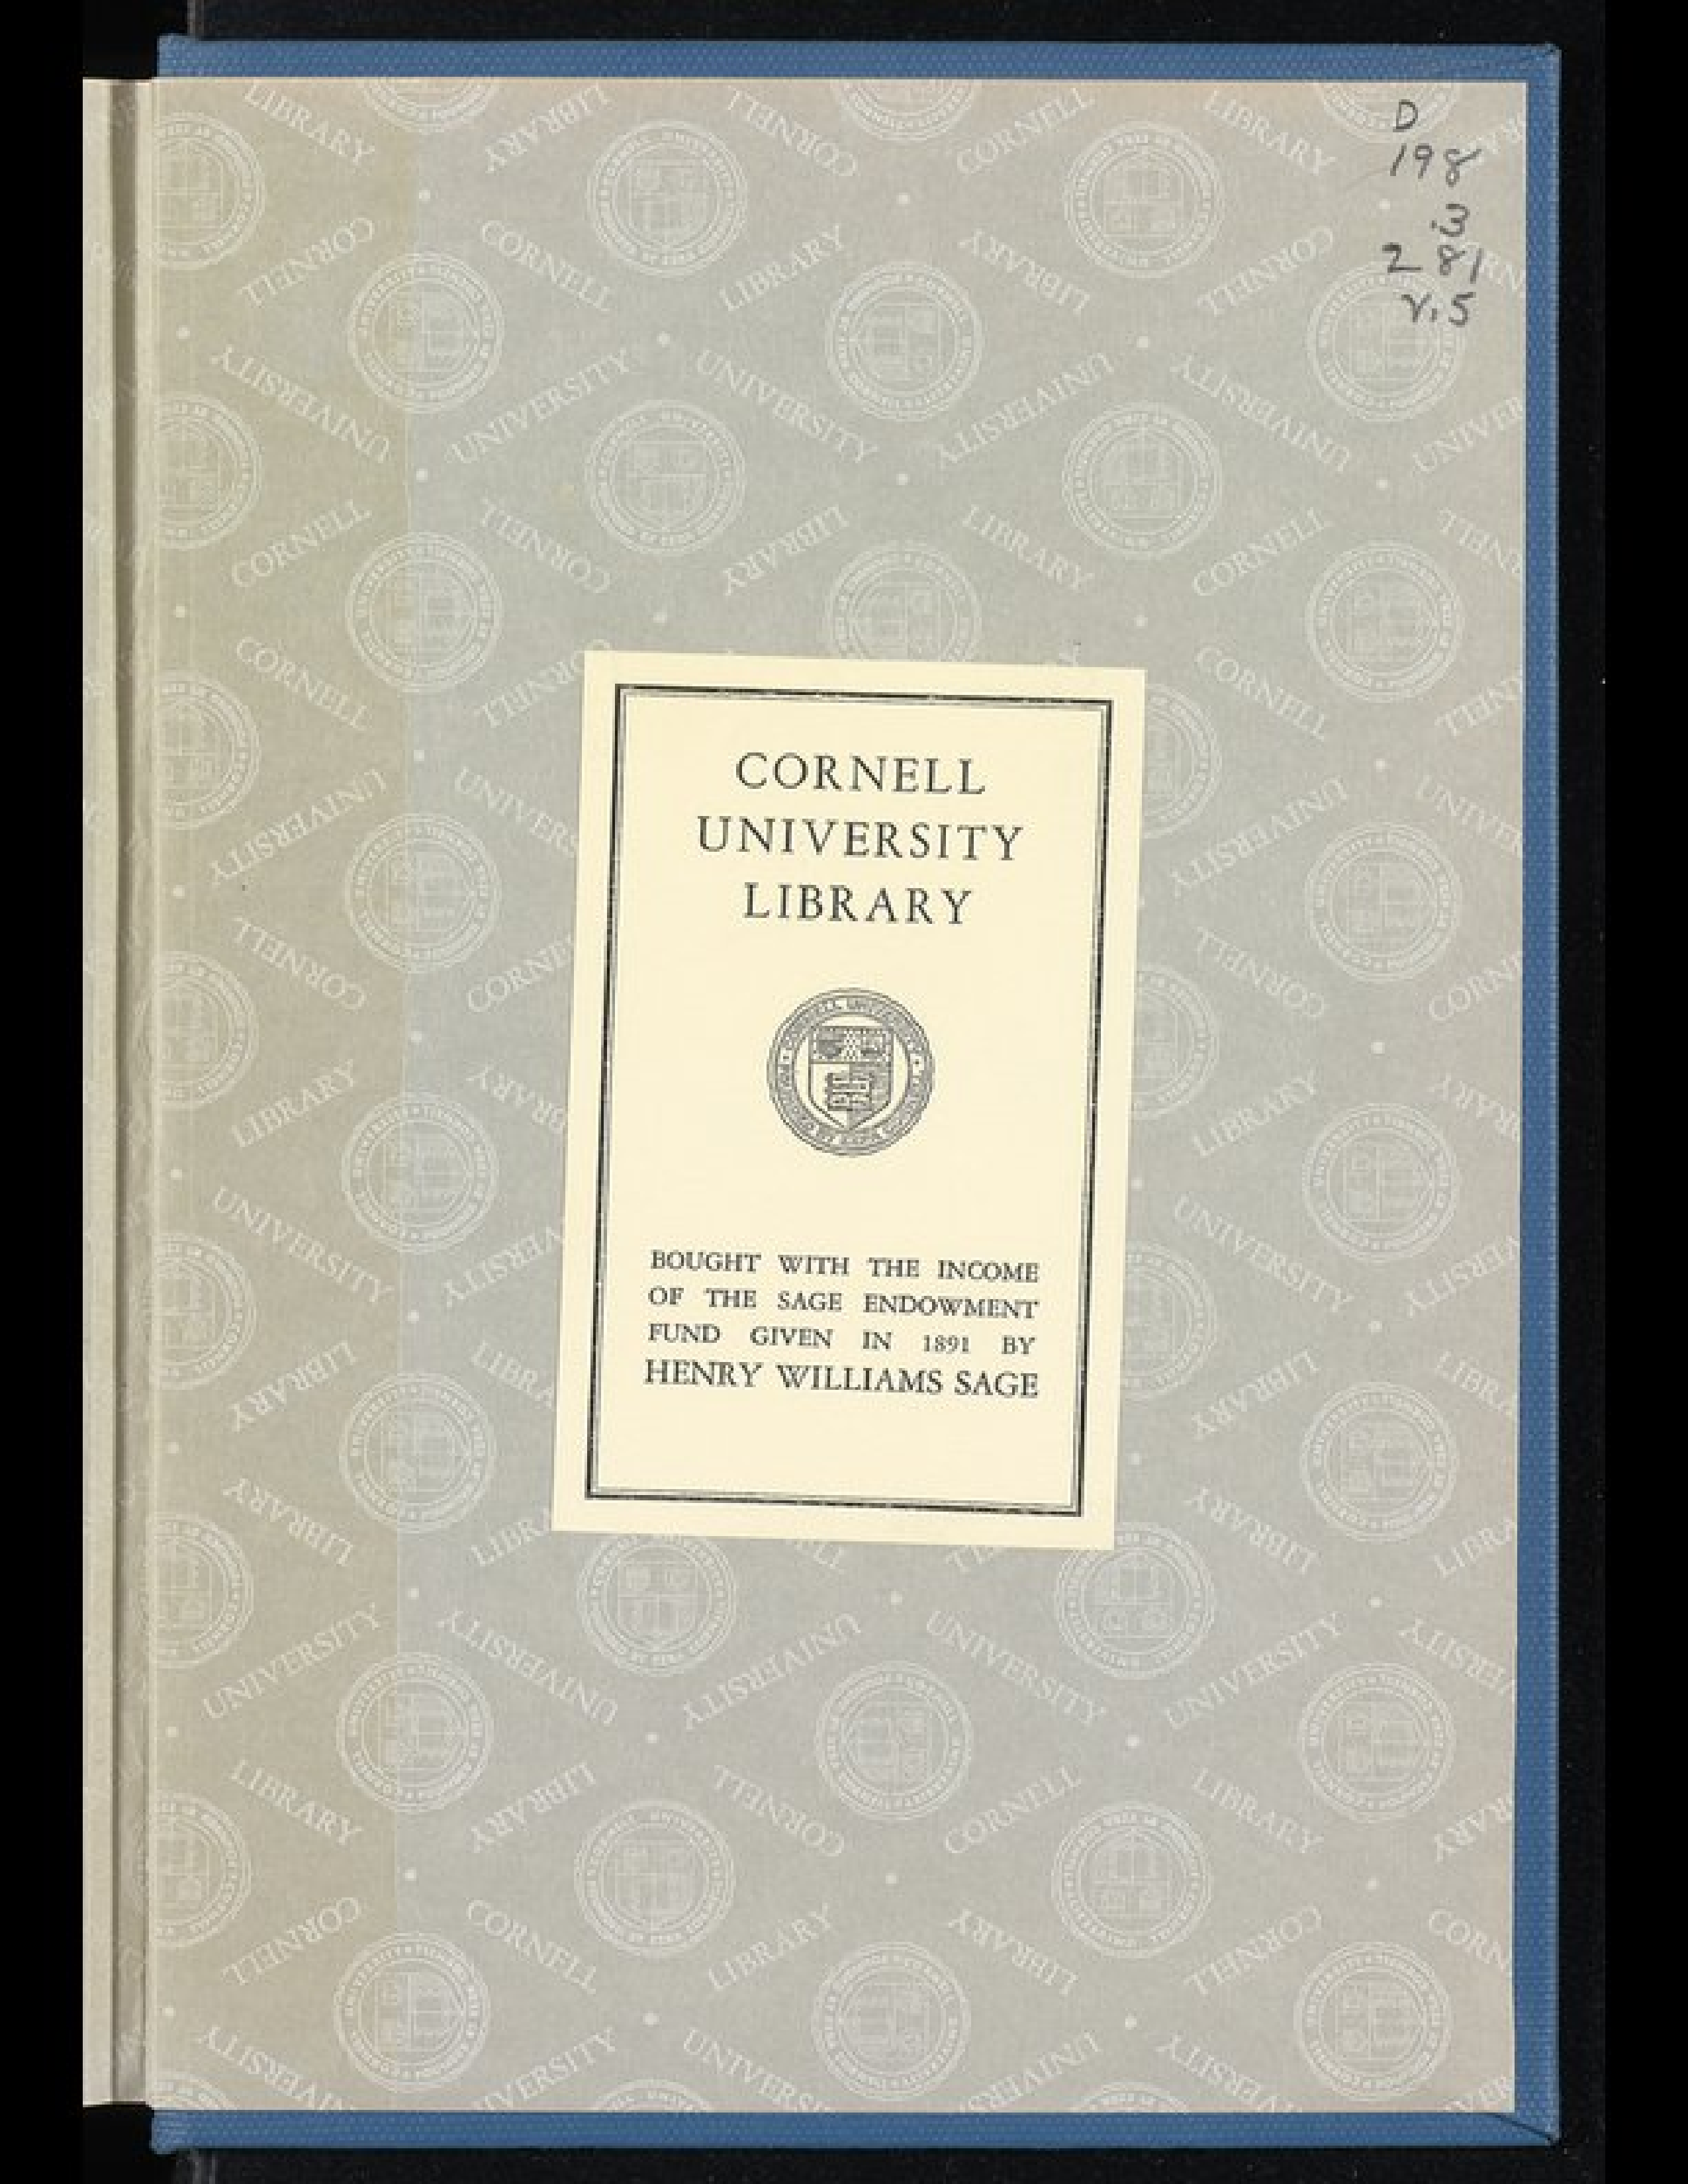 D
198
.3
281
v.5
CORNELL
UNIVERSITY
LIBRARY
BOUGHT WITH THE INCOME
OF THE SAGE ENDOWMENT
FUND GIVEN IN 1891 BY
HENRY WILLIAMS SAGE